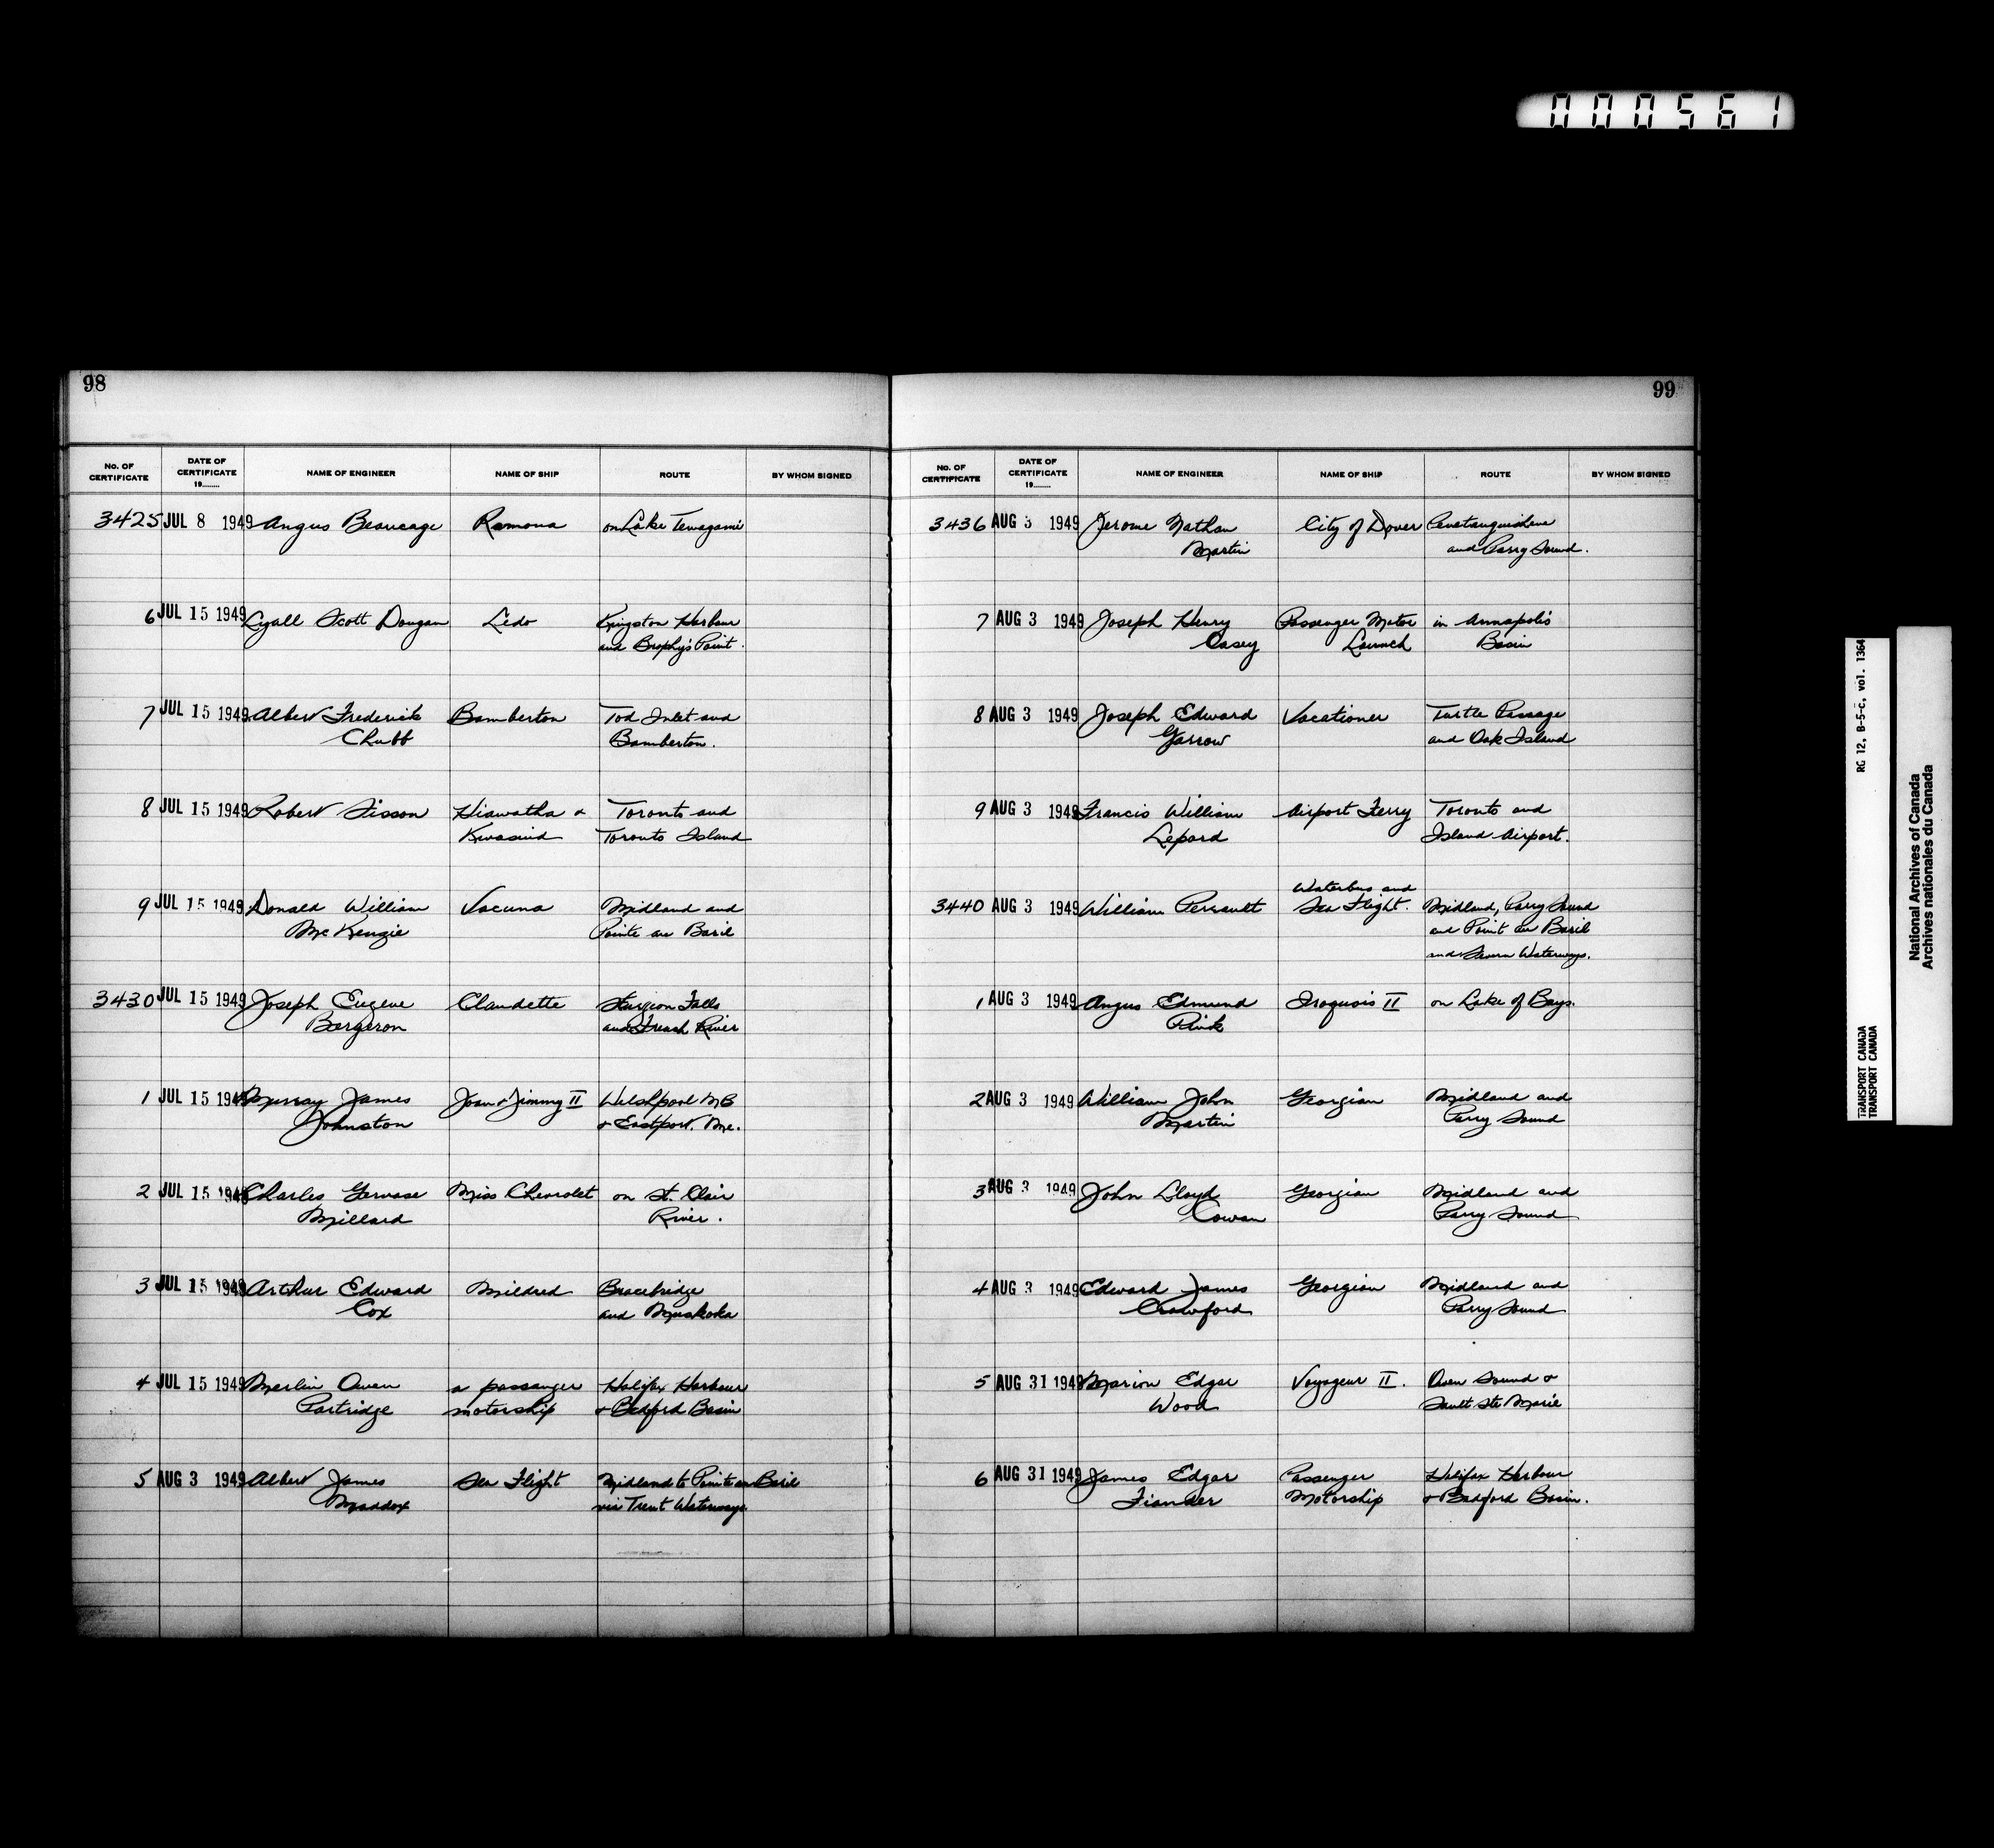 000561
98
No. OF CERTIFICATE DATE OF CERTIFICATE 19........ NAME OF ENGINEER NAME OF SHIP ROUTE BY WHOM SIGNED
3425 JUL 8 1949 Angus Beaucage Ramona on Lake Temagami
6 JUL 15 1949 Lyall Scott Dougan Ledo Kingston Harbour
and Brophy's Point.
7 JUL 15 1949 Albert Frederick Bamberton Tod Inlet and
Chubb Bamberton.
8 JUL 15 1949 Robert Sisson Hiawatha & Toronto and
Kwasind Toronto Island
9 JUL 15 1949 Donald William Vacuna Midland and
McKenzie Pointe au Baril
3430 JUL 15 1949 Joseph Eugene Claudette Sturgeon Falls
Bergeron and French River
1 JUL 15 1949 Murray James Joan & Jimmy II Welshpool NB
Johnston & Eastport. Me.
2 JUL 15 1949 Charles Gervase Miss Chevrolet on St. Clair
Millard River.
3 JUL 15 1949 Arthur Edward Mildred Bracebridge
Cox and Muskoka
4 JUL 15 1949 Merlin Owen a passenger Halifax Harbour
Partridge motorship & Bedford Basin
5 AUG 3 1949 Albert James Sea Flight Midland to Pointe au Baril
Maddox via Trent Waterways
99
No. OF CERTIFICATE DATE OF CERTIFICATE 19........ NAME OF ENGINEER NAME OF SHIP ROUTE BY WHOM SIGNED
3436 AUG 3 1949 Jerome Nathan City of Dover Penetanguishene
Martin and Parry Sound.
7 AUG 3 1949 Joseph Henry Passenger Motor in Annapolis
Casey Launch Basin
8 AUG 3 1949 Joseph Edward Vacationer Turtle Passage
Garrow and Oak Island
9 AUG 3 1949 Francis William Airport Ferry Toronto and
Lepard Island Airport.
Waterbus and
3440 AUG 3 1949 William Perrault Sea Flight. Midland, Parry Sound
and Point au Baril
and Severn Waterways.
1 AUG 3 1949 Angus Edmund Iroquois II on Lake of Bays.
Pink
2 AUG 3 1949 William John Georgian Midland and
Martin Parry Sound
3 AUG 3 1949 John Lloyd Georgian Midland and
Cowan Parry Sound
4 AUG 3 1949 Edward James Georgian Midland and
Crawford Parry Sound
5 AUG 31 1949 Marion Edgar Voyageur II. Owen Sound &
Wood Sault Ste Marie
6 AUG 31 1949 James Edgar Passenger Halifax Harbour
Fiander Motorship & Bedford Basin.
RG 12, B-5-C, vol. 1364
TRANSPORT CANADA
TRANSPORT CANADA
National Archives of Canada
Archives nationales du Canada